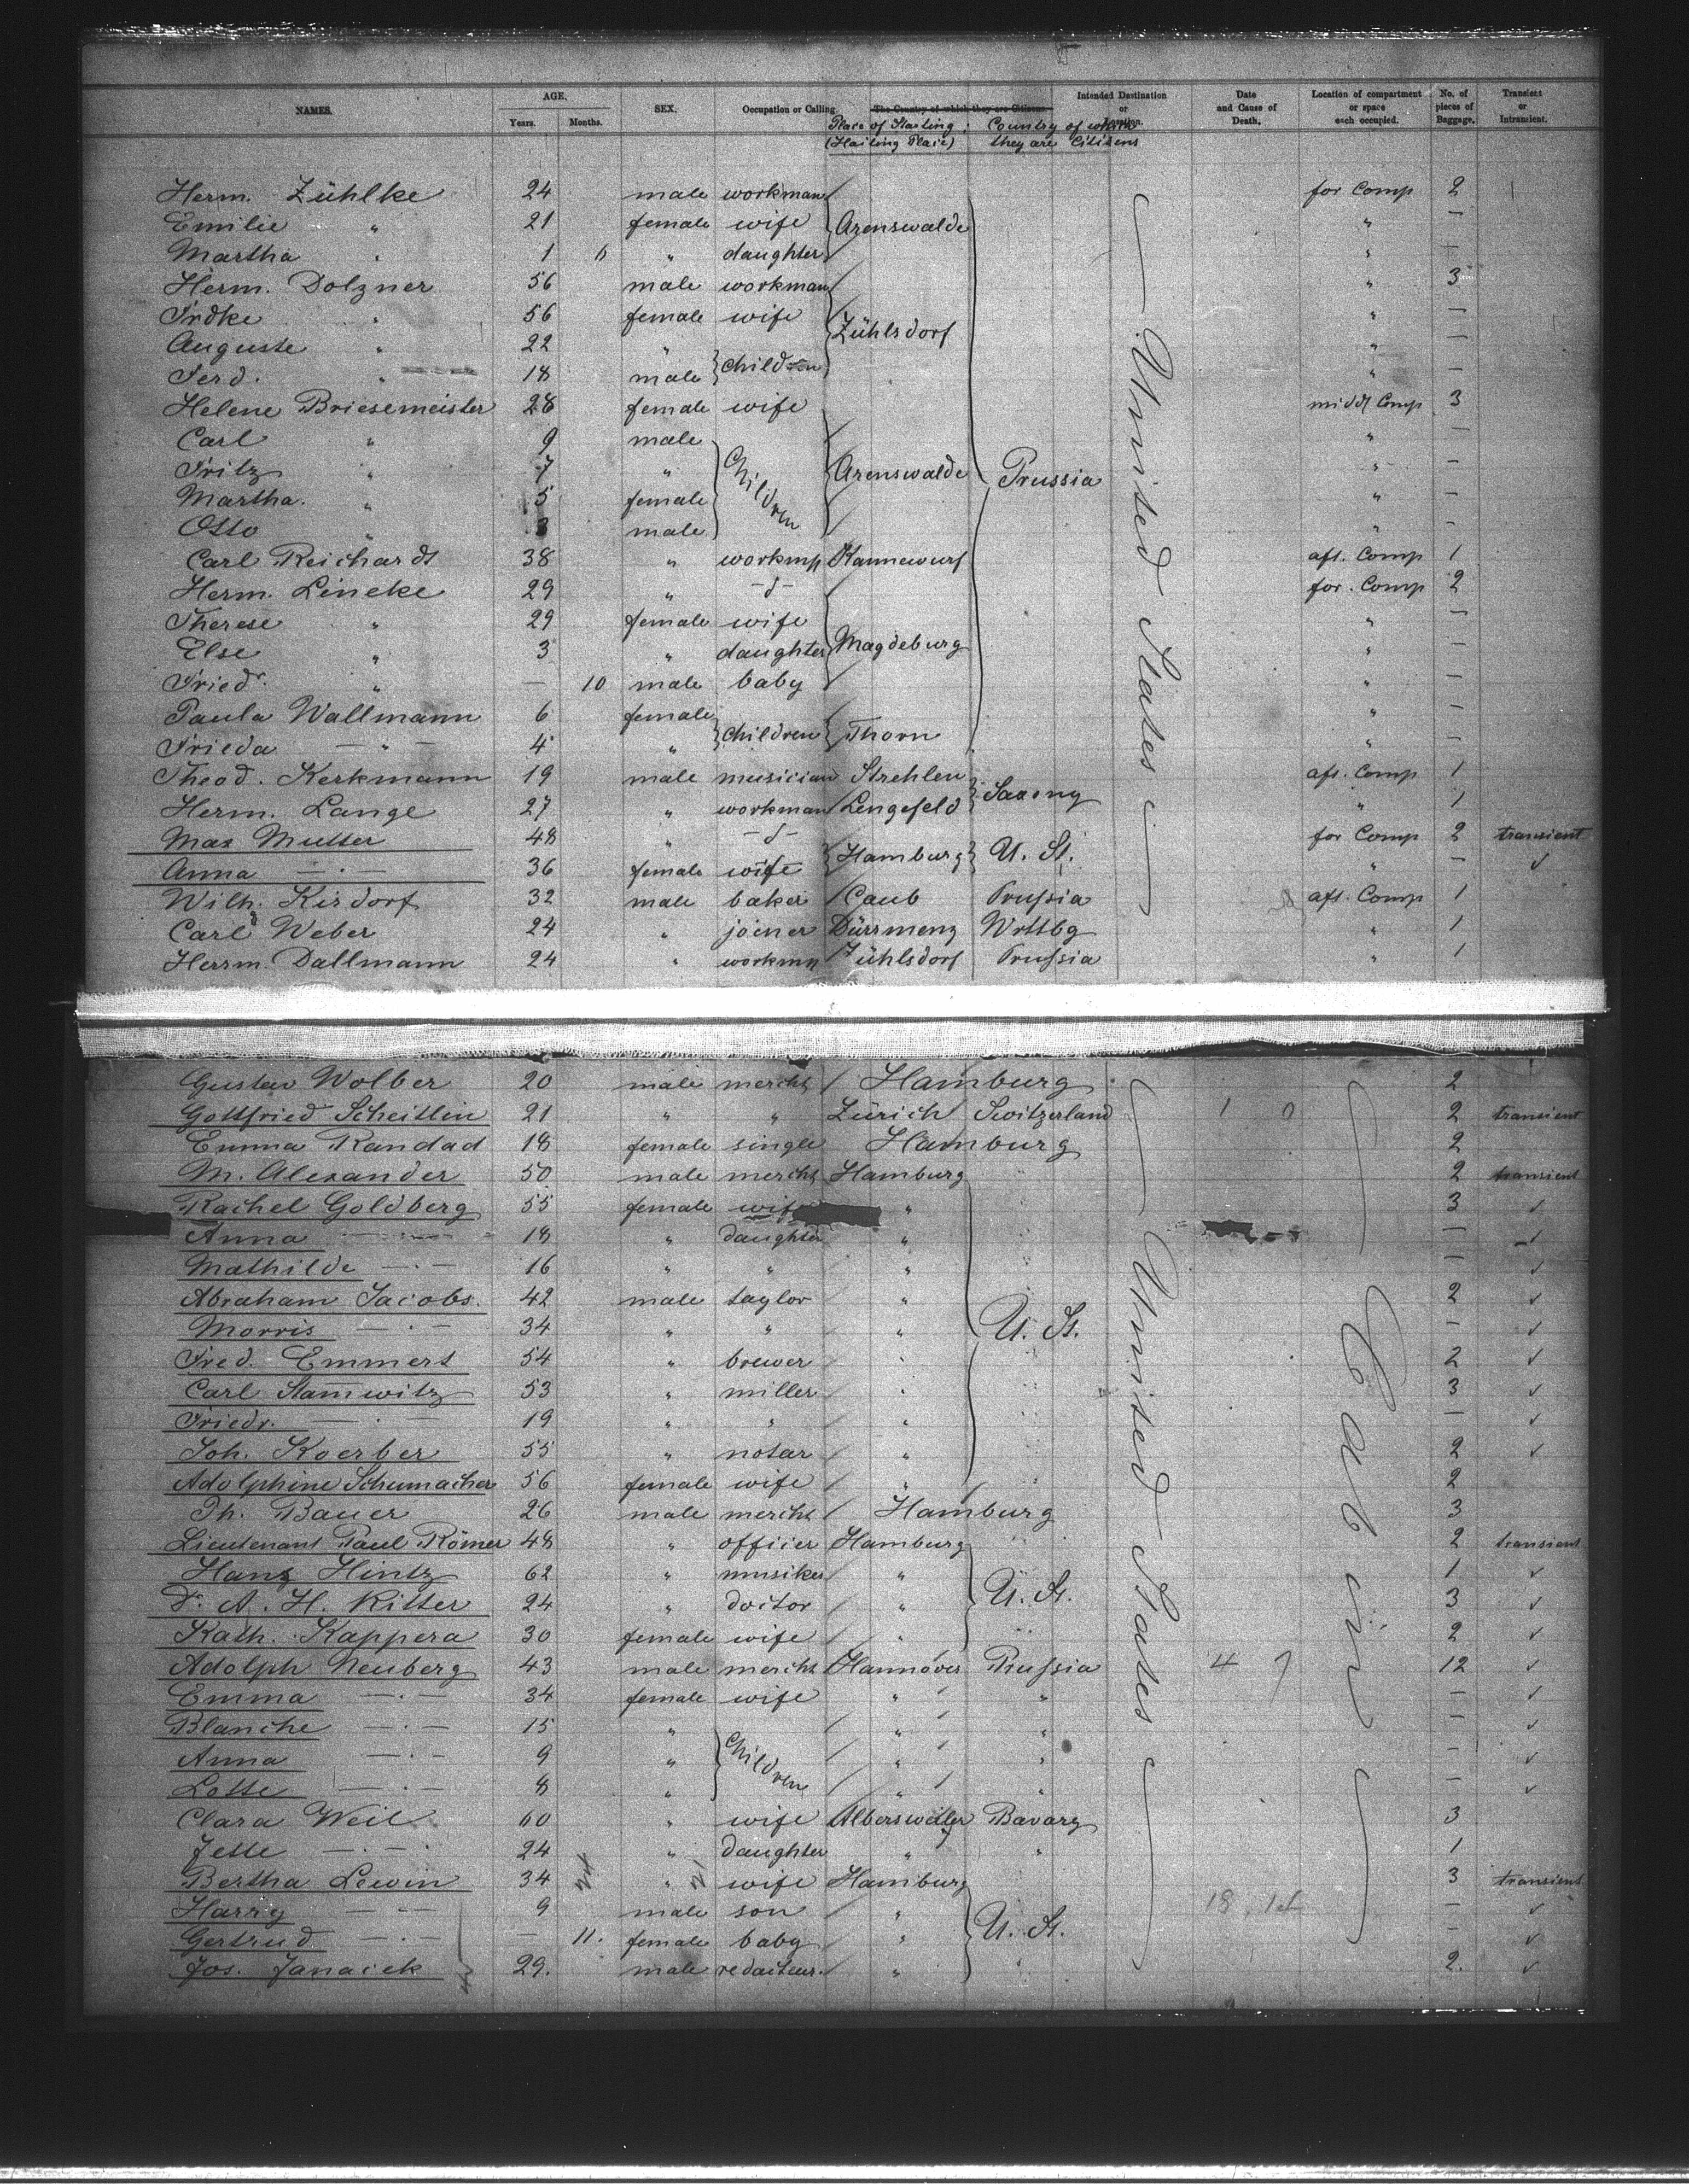 NAMES. AGE. Years. Months. SEX. Occupation or Calling. The Country of which they are Citizens. Intended Destination or Location. Date and Cause of Death. Location of compartment or space each occupied. No. of pieces of Baggage. Transient or Intransient.
Place of Starting; (Hailing Place) Country of which they are Citizens
Herm. Zühlke 24 male workman for Comp 2
Emilie " 21 female wife Arenswalde " —
Martha " 1 6 " daughter " —
Herm. Dolzner 56 male workman " 3
Frdke " 56 female wife Zühlsdorf " —
Auguste " 22 " children " —
Ferd. " 18 male " —
Helene Briesemeister 28 female wife middl Comp 3
Carl " 9 male " —
Fritz " 7 " Children Arenswalde Prussia " —
Martha. " 5 female " —
Otto " 3 male " —
Carl Reichardt 38 " workmn Kannewurf aft. Comp 1
Herm. Lineke 29 " —d— for. Comp 2
Therese " 29 female wife " —
Else " 3 " daughter Magdeburg " —
Friedr. " — 10 male baby " —
Paula Wallmann 6 female children Thorn " —
Frieda — " — 4 " " —
Theod. Kerkmann 19 male musician Strehlen Saxony aft. Comp 1
Herm. Lange 27 " workman Lengefeld " 1
Max Mutter 48 " —d— Hamburg U. St. for Comp 2 transient
Anna — " — 36 female wife " — ✓
Wilh. Kirdorf 32 male baker Caub Prussia aft. Comp 1
Carl Weber 24 " joiner Dürrmenz Wrttbg " 1
Herrm. Dallmann 24 " workmn Zühlsdorf Prussia " 1
United States
Gustav Wolber 20 male mercht Hamburg 2
Gottfried Scheitlin 21 " " Zürich Switzerland 1 0 2 transient
Emma Randad 18 female single Hamburg 2
M. Alexander 50 male mercht Hamburg 2 transient
Rachel Goldberg 55 female wife " 3 ✓
Anna — " — 18 " daughter " — ✓
Mathilde — " — 16 " " " — ✓
Abraham Jacobs. 42 male taylor " 2 ✓
Morris — " — 34 " " " U. St. — ✓
Fred. Emmert 54 " brewer " 2 ✓
Carl Stamwitz 53 " miller " 3 ✓
Friedr. — " — 19 " " " — ✓
Joh. Koerber 55 " notar " 2 ✓
Adolphine Schumacher 56 female wife " 2
Th. Bauer 26 male mercht Hamburg 3
Lieutenant Paul Römer 48 " officier Hamburg 2 transient
Hans Hintz 62 " musiker " 1 ✓
Dr. A. H. Ritter 24 " doctor " U. St. 3 ✓
Kath. Kappera 30 female wife " 2 ✓
Adolph Neuberg 43 male mercht Hannover Prussia 4 7 12 ✓
Emma — " — 34 female wife " " — ✓
Blanche — " — 15 " " " — ✓
Anna — " — 9 " Children " " — ✓
Lotte — " — 8 " " " — ✓
Clara Weil 60 " wife Albersweiler Bavary 3
Jette — " — 24 " daughter " " 1
Bertha Lewin 34 " wife Hamburg 3 transient
Harry — " — 9 male son " U. St. — ✓
Gertrud — " — — 11. female baby " — ✓
Jos. Janacek 29. male redacteur. " 2. ✓
United States
Cabin